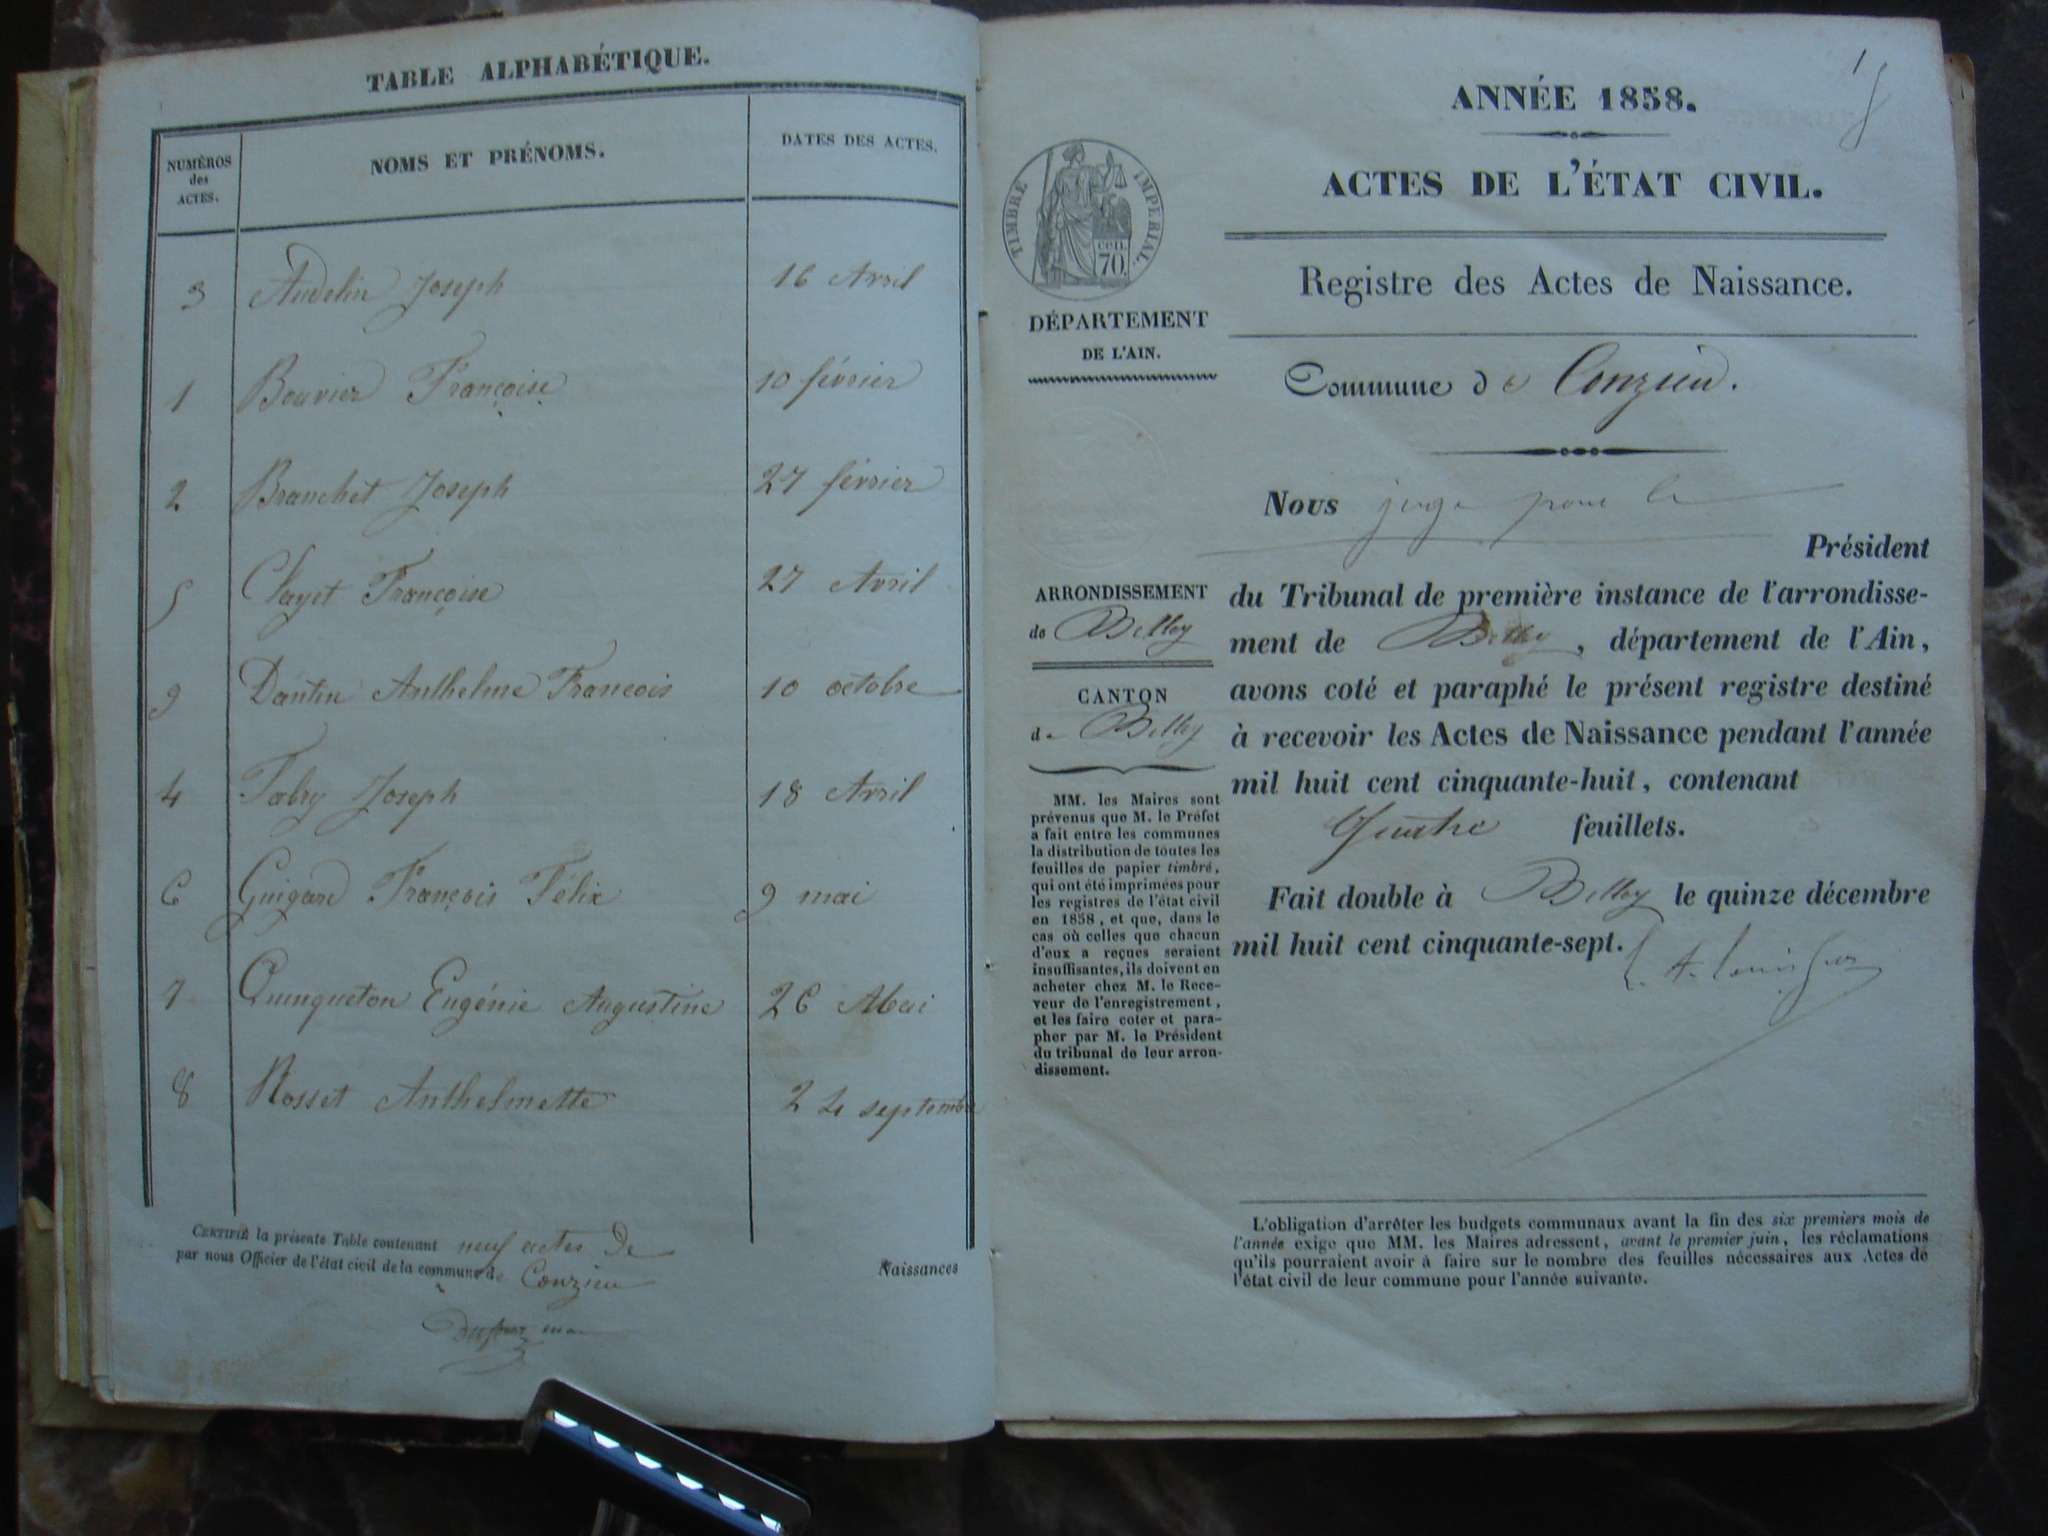 TABLE ALPHABÉTIQUE.
NUMÉROS des ACTES.
NOMS ET PRÉNOMS.
DATES DES ACTES.
3 Andelin Joseph 16 Avril
1 Bouvier Françoise 10 février
2 Branchet Joseph 27 février
5 Clayet Françoise 27 Avril
9 Dantin Anthelme François 10 octobre
4 Fabry Joseph 18 Avril
6 Guigard François Félix 9 mai
7 Quinqueton Eugénie Augustine 26 Mai
8 Rosset Anthelmette 24 septembre
CERTIFIÉ la présente Table contenant neuf actes de
Naissances
par nous Officier de l'état civil de la commune de Conzieu
1
ANNÉE 1858.
ACTES DE L'ÉTAT CIVIL.
TIMBRE IMPERIAL.
cen.
70.
Registre des Actes de Naissance.
DÉPARTEMENT
DE L'AIN.
Commune de Conzieu.
Nous juge pour le
Président
ARRONDISSEMENT
de Belley
CANTON
de Belley
du Tribunal de première instance de l'arrondisse-
ment de Belley, département de l'Ain,
avons coté et paraphé le présent registre destiné
à recevoir les Actes de Naissance pendant l'année
mil huit cent cinquante-huit, contenant
Quatre feuillets.
Fait double à Belley le quinze décembre
mil huit cent cinquante-sept.
MM. les Maires sont
prévenus que M. le Préfet
a fait entre les communes
la distribution de toutes les
feuilles de papier timbré,
qui ont été imprimées pour
les registres de l'état civil
en 1858, et que, dans le
cas où celles que chacun
d'eux a reçues seraient
insuffisantes, ils doivent en
acheter chez M. le Rece-
veur de l'enregistrement,
et les faire coter et para-
pher par M. le Président
du tribunal de leur arron-
dissement.
L'obligation d'arrêter les budgets communaux avant la fin des six premiers mois de
l'année exige que MM. les Maires adressent, avant le premier juin, les réclamations
qu'ils pourraient avoir à faire sur le nombre des feuilles nécessaires aux Actes de
l'état civil de leur commune pour l'année suivante.